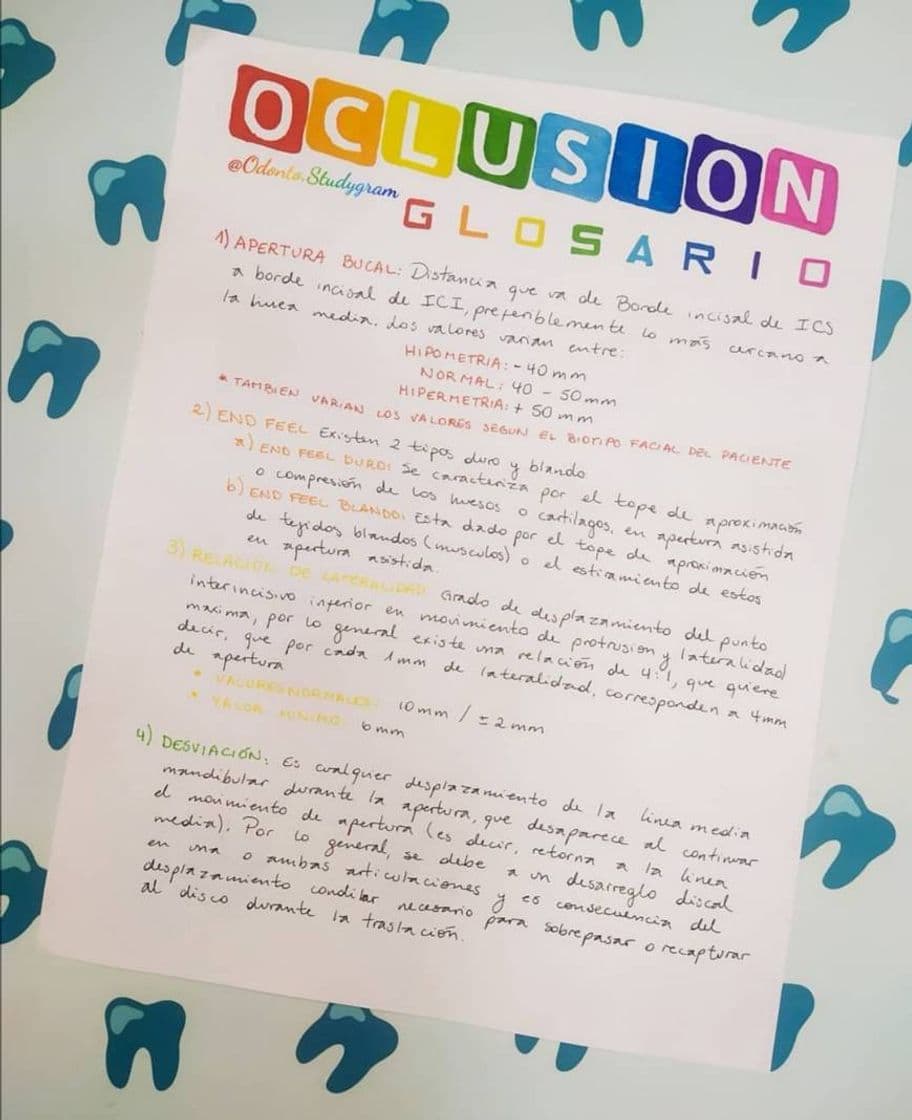 OCLUSION
@Odonto.Studygram
GLOSARIO
1) APERTURA BUCAL: Distancia que va de Borde incisal de ICS
a borde incisal de ICI, preferiblemente lo más cercano a
la linea media. Los valores varian entre:
HIPOMETRIA: - 40 mm
NORMAL: 40 - 50 mm
HIPERMETRIA: + 50 mm
* TAMBIEN VARIAN LOS VALORES SEGUN EL BIOTIPO FACIAL DEL PACIENTE
2) END FEEL Existen 2 tipos duro y blando
a) END FEEL DURO: Se caracteriza por el tope de aproximación
o compresión de los huesos o cartilagos, en apertura asistida
b) END FEEL BLANDO: Esta dado por el tope de aproximación
de tejidos blandos (musculos) o el estiramiento de estos
en apertura asistida.
3) RELACIÓN DE LATERALIDAD: Grado de desplazamiento del punto
interincisivo inferior en movimiento de protrusion y lateralidad
maxima, por lo general existe una relación de 4:1, que quiere
decir, que por cada 1mm de lateralidad, corresponden a 4mm
de apertura
• VALORES NORMALES: 10mm / ± 2mm
• VALOR MINIMO: 6mm
4) DESVIACIÓN: Es cualquier desplazamiento de la linea media
mandibular durante la apertura, que desaparece al continuar
el movimiento de apertura (es decir, retorna a la linea
media). Por lo general, se debe a un desarreglo discal
en una o ambas articulaciones y es consecuencia del
desplazamiento condilar necesario para sobrepasar o recapturar
al disco durante la traslación.